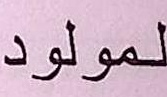 لمولود